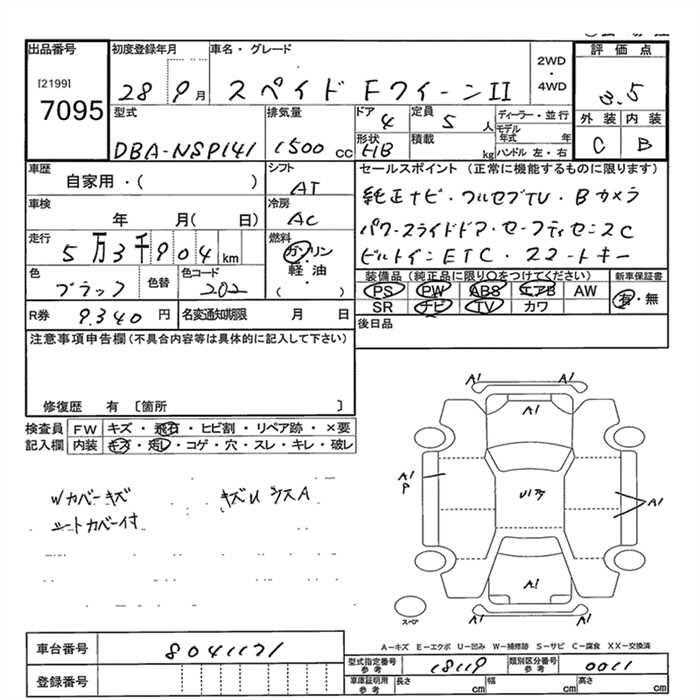 出品番号 初度登録年月 車名・グレード 2WD・4WD 評価点
[2199]
7095
28 9月 スペイド FクイーンII 3.5
外装 内装
C B
型式 排気量 ドア 定員 ディーラー・並行
DBA-NSP141 1500cc 4 5人 モデル年式 年
形状 積載 ハンドル 左・右
HB kg
車歴 シフト セールスポイント (正常に機能するものに限ります)
自家用・( ) AT
純正ナビ・フルセグTV・Bカメラ
車検 冷房
年 月( 日) AC
パワースライドドア・セーフティセンスC
走行 燃料
5万3千904km ガソリン・軽・油 ( )
ビルトインETC・スマートキー
色 色替 色コード
ブラック 202
装備品 (純正品に限り○をつけてください) 新車保証書
PS PW ABS エアB AW 有・無
SR ナビ TV カワ
R券 9.340円 名変通知期限 月 日
後日品
注意事項申告欄 (不具合内容等は具体的に記入して下さい)
修復歴 有 〔箇所 〕
検査員記入欄 FW キズ・飛石・ヒビ割・リペア跡・×要
内装 キズ・・コゲ・穴・スレ・キレ・破レ
Wカバーキズ
シートカバー付
A1 A1
A1
A1
P
A1
A1
スペア
A―キズ E―エクボ U―凹み W―補修跡 S―サビ C―腐食 XX―交換済
車台番号 8041171
型式指定番号参考 18119 類別区分番号参考 0011
登録番号
車庫証明用参考 長さ cm 幅 cm 高さ cm